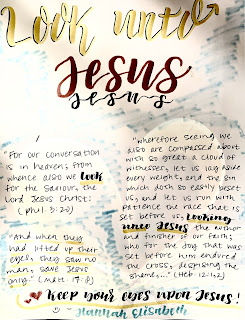 Look unto
Jesus
Jesus
"For our conversation
is in heaven; from
whence also we look
for the Saviour, the
Lord Jesus Christ:
(Phil. 3:20)
"And when they
had lifted up their
eyes, they saw no
man, save Jesus
only." (Matt. 17:8)
"Wherefore seeing we
also are compassed about
with so great a cloud of
witnesses, let us lay aside
every weight, and the sin
which doth so easily beset
us, and let us run with
patience the race that is
set before us, Looking
unto Jesus the author
and finisher of our faith;
who for the joy that was
set before him endured
the cross, despising the
shame,..." (Heb 12:1,2)
Keep your eyes upon Jesus!
Hannah Elisabeth